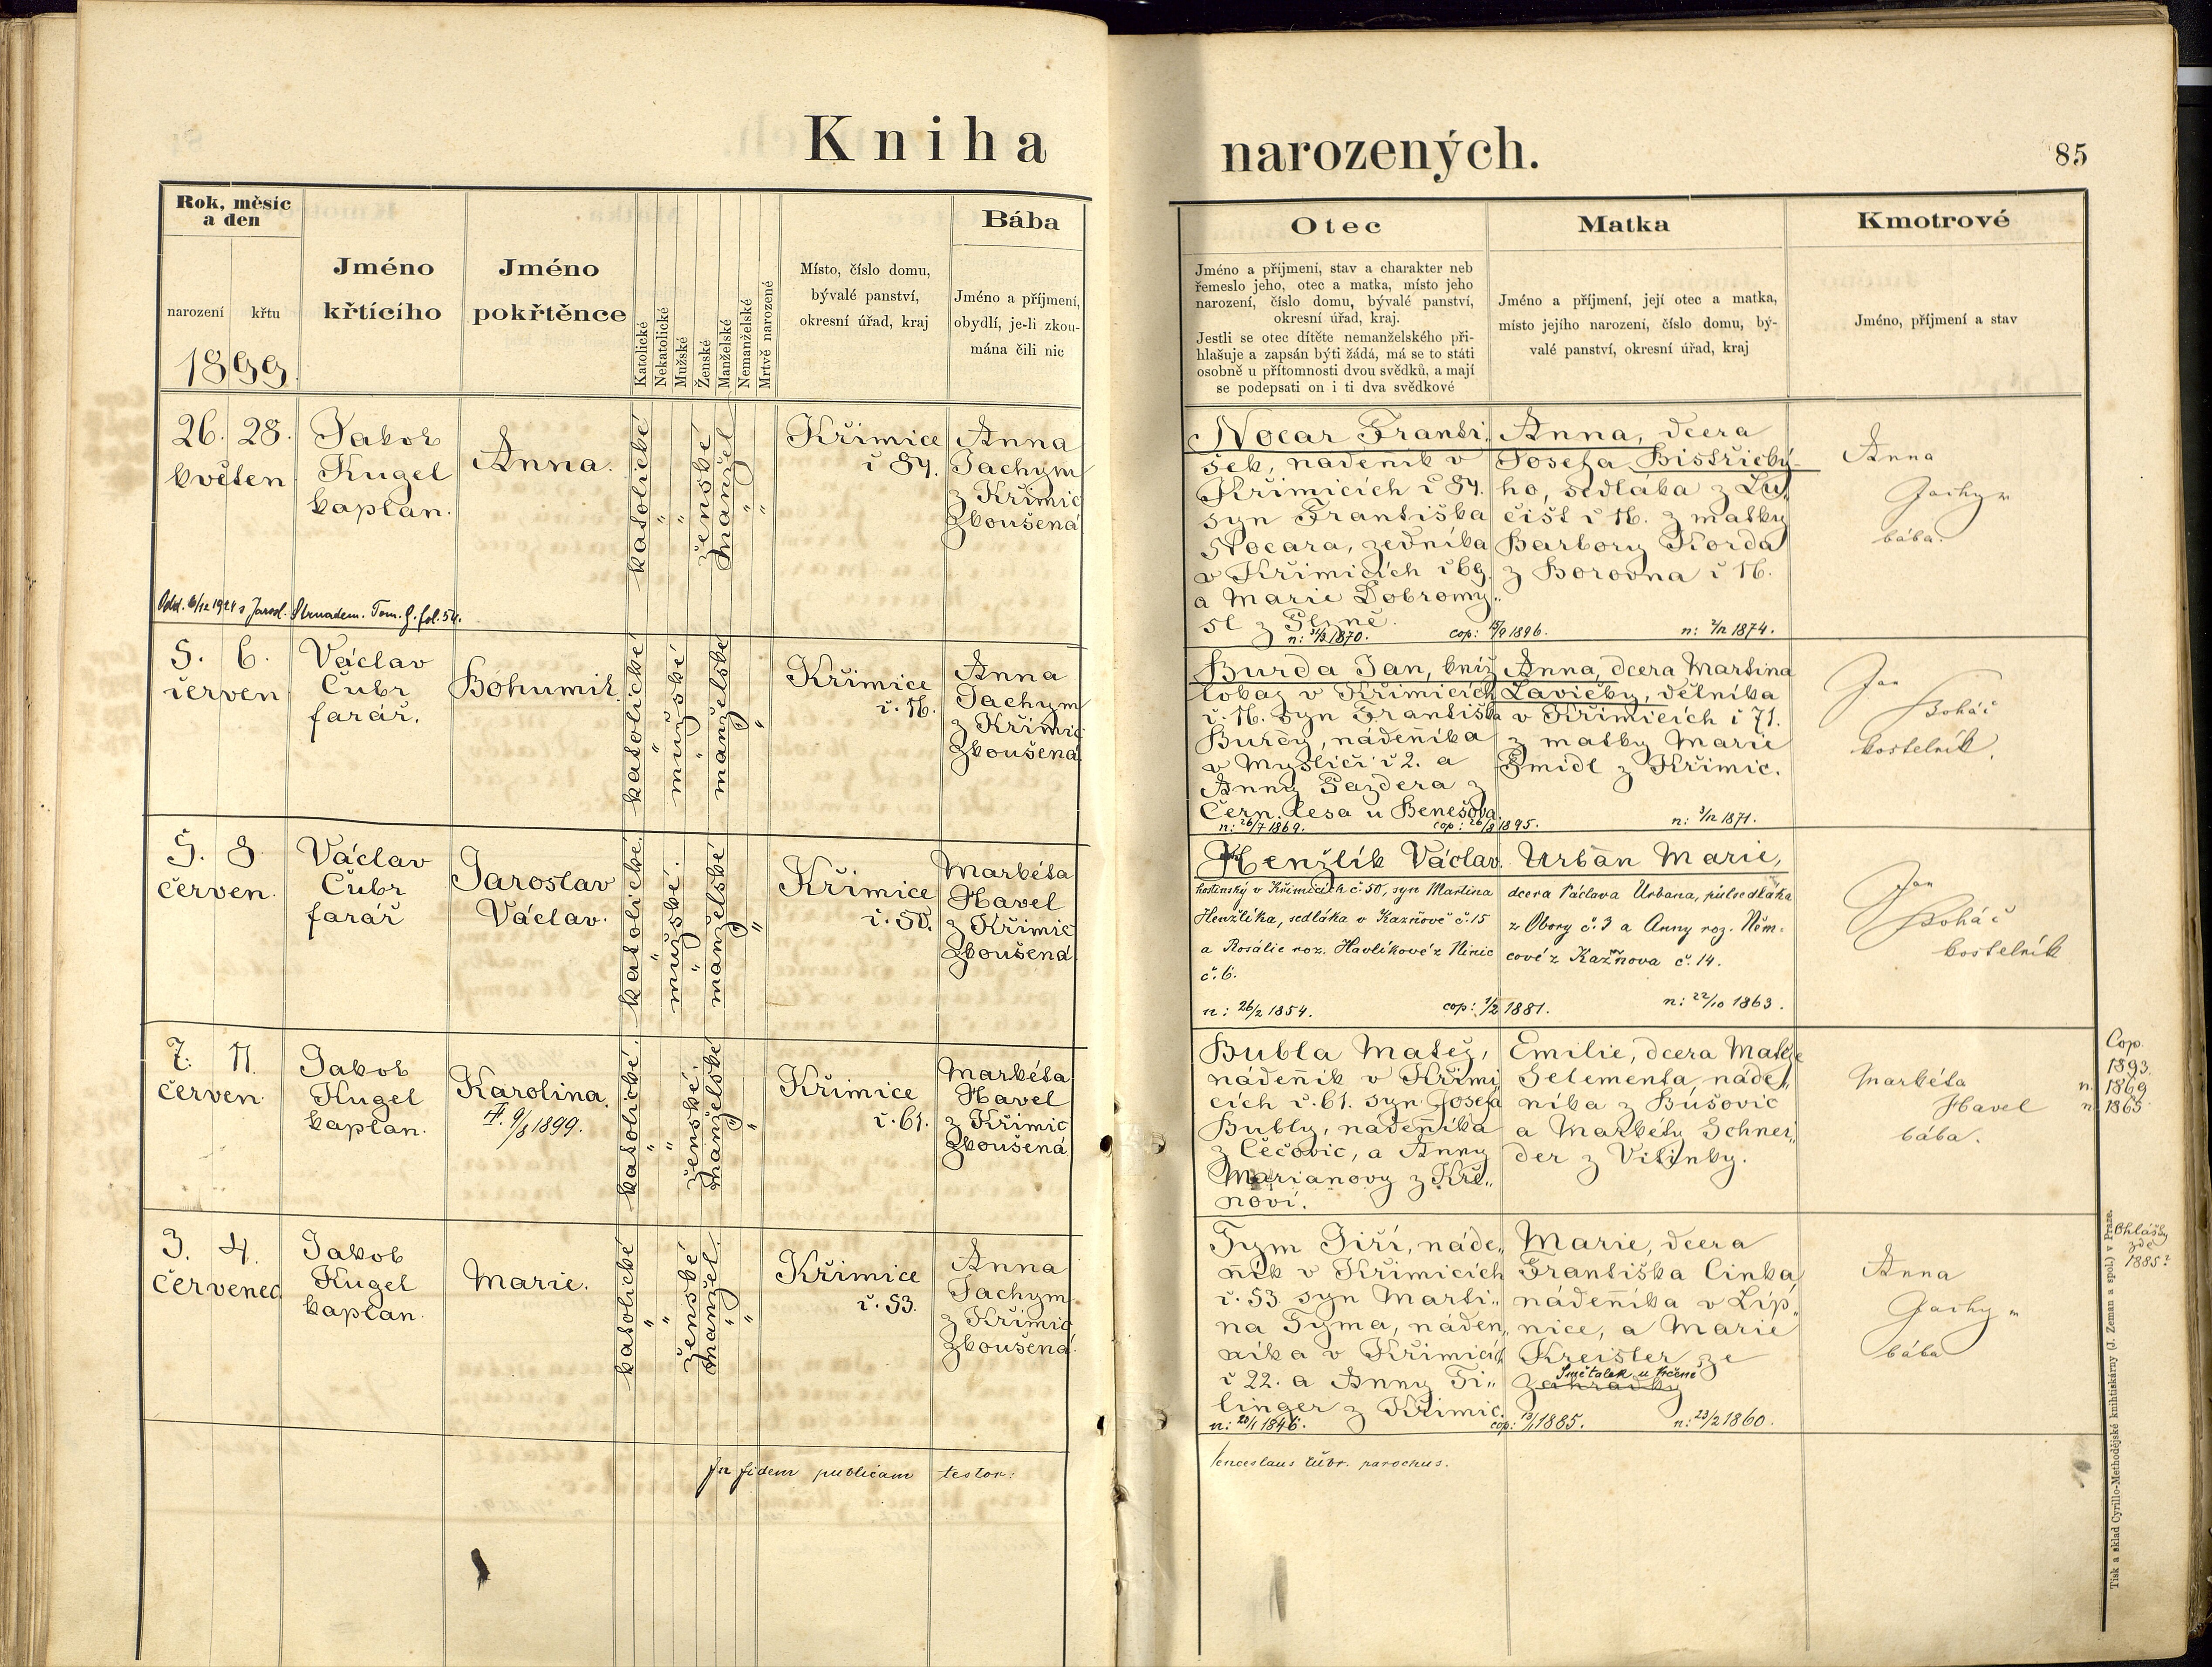 Kniha narozených.
85
Rok, měsíc
a den
narození křtu
1899
Jméno
křtícího
Jméno
pokřtěnce
Katolické
Nekatolické
Mužské
Ženské
Manželské
Nemanželské
Mrtvě narozené
Místo, číslo domu,
bývalé panství,
okresní úřad, kraj
Bába
Jméno a příjmení,
obydlí, je-li zkou-
mána čili nic
Otec
Jméno a příjmení, stav a charakter neb
řemeslo jeho, otec a matka, místo jeho
narození, číslo domu, bývalé panství,
okresní úřad, kraj.
Jestli se otec dítěte nemanželského při-
hlašuje a zapsán býti žádá, má se to státi
osobně u přítomnosti dvou svědků, a mají
se podepsati on i ti dva svědkové
Matka
Jméno a příjmení, její otec a matka,
místo jejího narození, číslo domu, bý-
valé panství, okresní úřad, kraj
Kmotrové
Jméno, příjmení a stav
26. 28.
květen
Jakob
Kugel
kaplan.
Anna.
katolické
"
"
ženské
manžel
"
"
Křimice
č 84.
Anna
Jachym
z Křimic
zkoušená
Nocar Franti,
šek, nádeník v
Křimicích č 84.
syn Františka
Nocara, zedníka
v Křimicích č 69.
a Marie Dobromy„
sl z
n: 31/3 1870. cop: 15/9 1896.
Anna, dcera
Josefa Bistřický-
ho, sedláka z Lu„
čišt č 16. z matky
Barbory Korda
z Borovna č 16.
n: 2/12 1874.
Anna
Jachym
bába.
Odd. 6/12 1924 s Jarosl. Strnadem. Tom. G. fol. 54.
5. 6.
červen
Václav
Čubr
farář.
Bohumil
katolické
"
mužské
"
manželské
"
"
Křimice
č. 16.
Anna
Jachym
z Křimic
zkoušená
Burda Jan, kníž
tobaz v Křimicích
č. 16. syn Františka
Burdy, nádeníka
v Myslíči č 2. a
Anny Pazdera z
Čern. Lesa u Benešova
n: 26/7 1869. cop: 26/8 1895.
Anna, dcera Martina
Lavičky, dělníka
v Křimicích č 71.
z matky Marie
Šmidl z Křimic.
n: 3/12 1871.
Jan
Boháč
kostelník.
5. 8.
červen.
Václav
Čubr
farář
Jaroslav
Václav.
katolické.
"
mužské.
"
manželské
"
"
Křimice
č. 50.
Markéta
Havel
z Křimic
zkoušená.
Henžlík Václav.
hostinský v Křimicích č. 50, syn Martina
Henžlíka, sedláka v Kazňově č. 15
a Rosálie roz. Havlíkové z Ninic
č. 6.
n: 26/2 1854. cop: 1/2 1881.
Urban Marie,
dcera Václava Urbana, půlsedláka
z Obory č. 3 a Anny roz. Něm-
cové z Kazňova č. 14.
n: 22/10 1863.
Jan
Boháč
kostelník
7. 11.
červen.
Jakob
Kugel
kaplan.
Karolina.
9/8 1899.
katolické.
"
"
ženské.
manželské
"
"
Křimice
č. 61.
Markéta
Havel
z Křimic
zkoušená
Bubla Matěj,
nádeník v Křimi„
cích č. 61. syn Josefa
Bubly, nádeníka
z Čečovic, a Anny
Marianovy z Kře„
noví.
Emilie, dcera Matěje
Selementa, náde„
níka z Bušovic
a Markéty Schnei„
der z Vitinky.
Markéta
Havel
bába.
Cop.
1893.
n. 1869
n. 1865
3. 4.
červenec
Jakob
Kugel
kaplan.
Marie.
katolické
"
"
ženské
manžel.
"
"
Křimice
č. 53.
Anna
Jachym
z Křimic
zkoušená.
Tym Jiří, náde„
ník v Křimicích
č. 53 syn Marti„
na Tyma, náden„
níka v Křimicích
č 22. a Anny Ti„
linger z Křimic.
n: 20/1 1846. cop: 13/1 1885.
Marie, dcera
Františka Cinka,
nádeníka v Líp„
nice, a Marie
Kreisler ze
Smětalek u Kčené
Zahrádky
n: 23/2 1860.
Anna
Jachym
bába
Ohlášky
zde
1885?
In fidem publicam testor:
Venceslaus Čubr. parochus.
Tisk a sklad Cyrillo-Methodějské knihtiskárny (J. Zeman a spol.) v Praze.